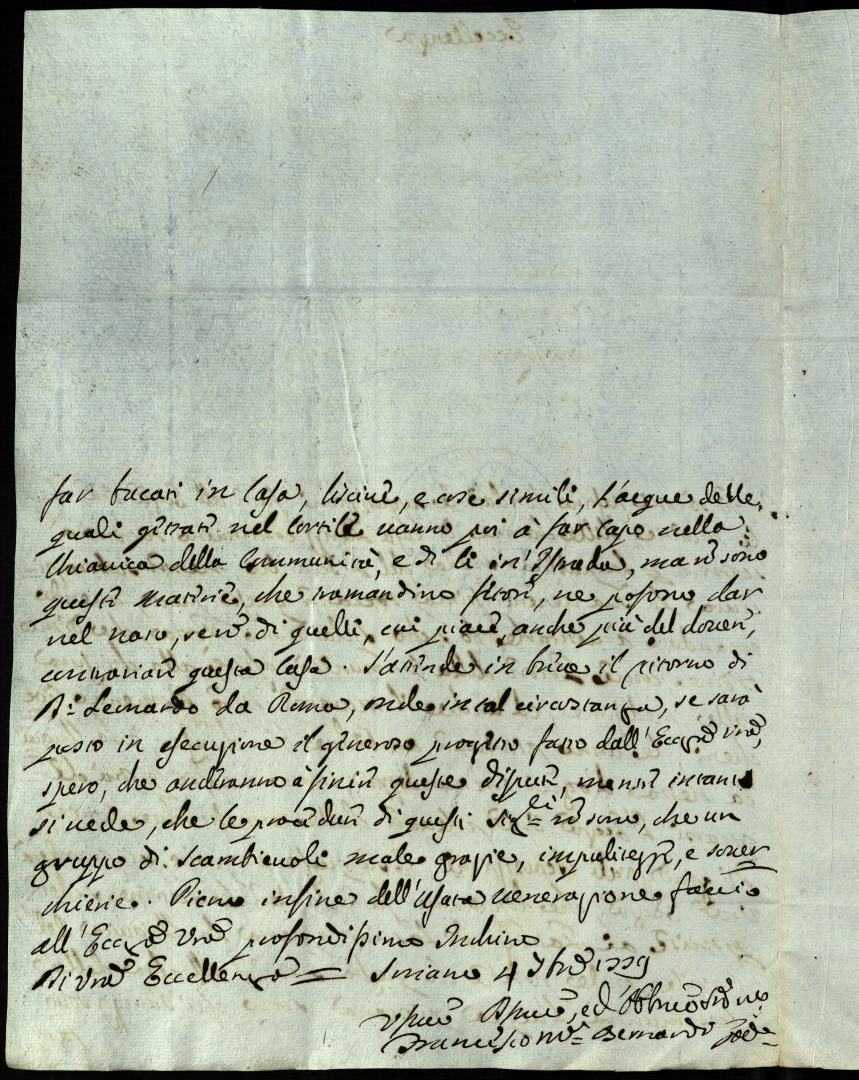 far bucati in Casa, liscive, e cose simili, l'acque delle
quali gettate nel Cortile vanno poi à far capo nella
Chiavica della Communità, e di lì in Istrada, ma nō sono
queste materie, che tramandino fetori, ne possono dar
nel naso, se nō di quelli, cui piace, anche più del dovere,
contrariare questa Casa. S'attende in breve il ritorno di
D: Leonardo da Roma, onde in tal circostanza, se sarà
posto in esecuzione il generoso progetto fatto dall'Eccza Vra,
spero, che anderanno à finire queste dispute, mentre intanto
si vede, che le procedure di questi Sigli nō sono, che un
gruppo di scambievoli male grazie, impulitezze, e sover
chierie. Pieno infine dell'usata venerazione faccio
all'Eccza Vra profondissimo Inchino
Di Vra Eccellenza = Soriano 4 7bre 1779
Devmo, ed Obblmo Servre
Francesco Ma Bernardo